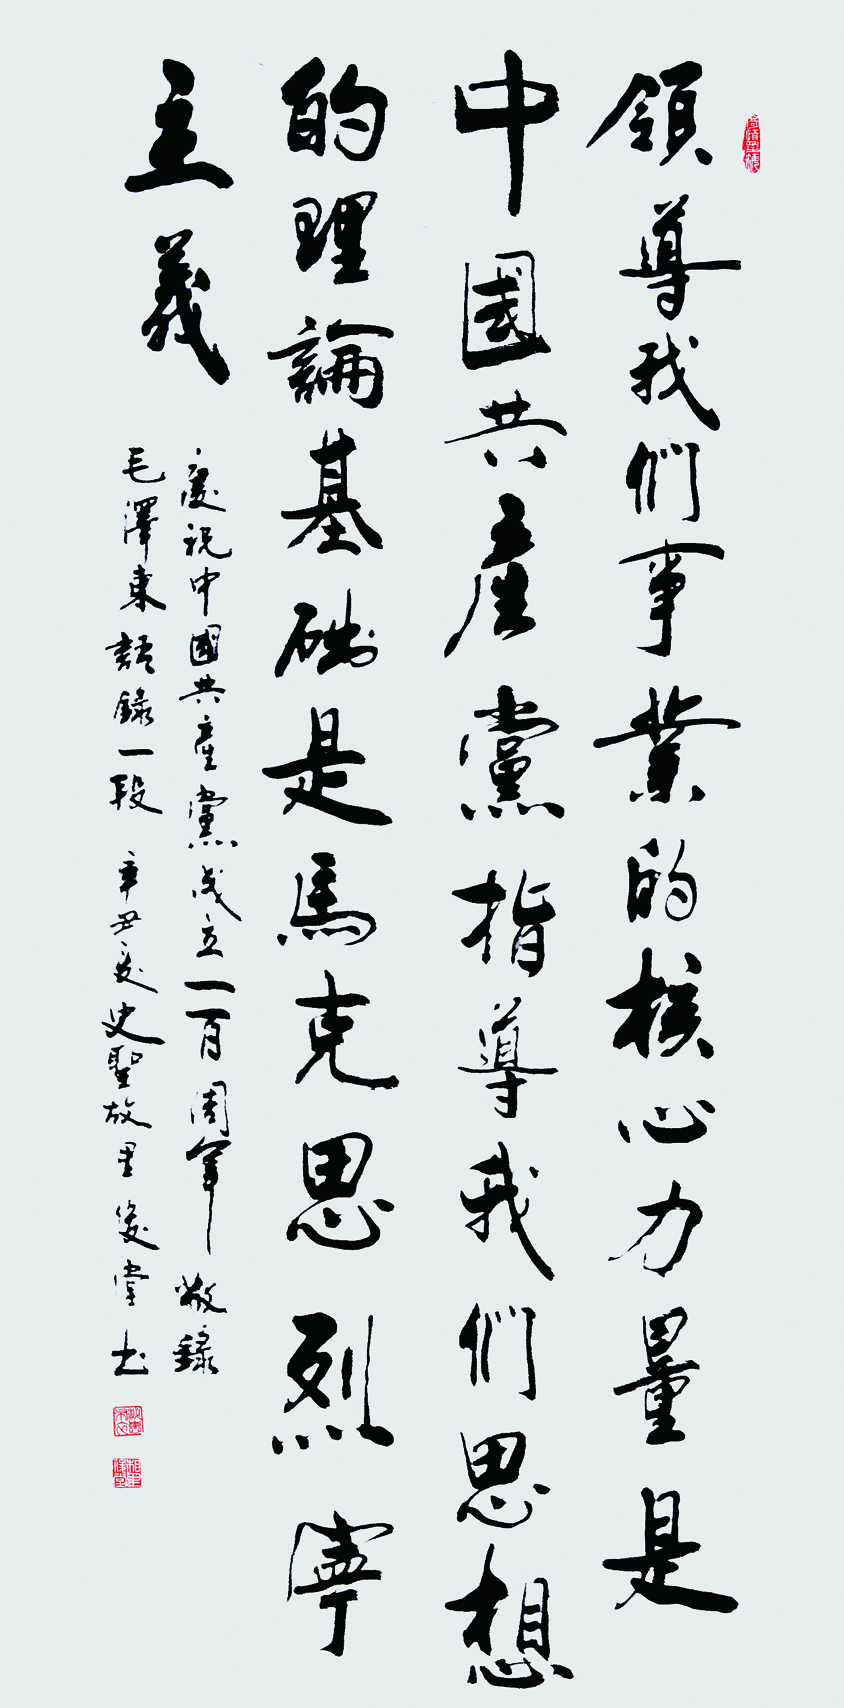 領導我們事業的核心力量是
中國共產黨指導我們思想
的理論基礎是馬克思烈寧
主義
慶祝中國共產黨成立一百周年敬錄
毛澤東語錄一段辛丑夏史聖故里俊堂书